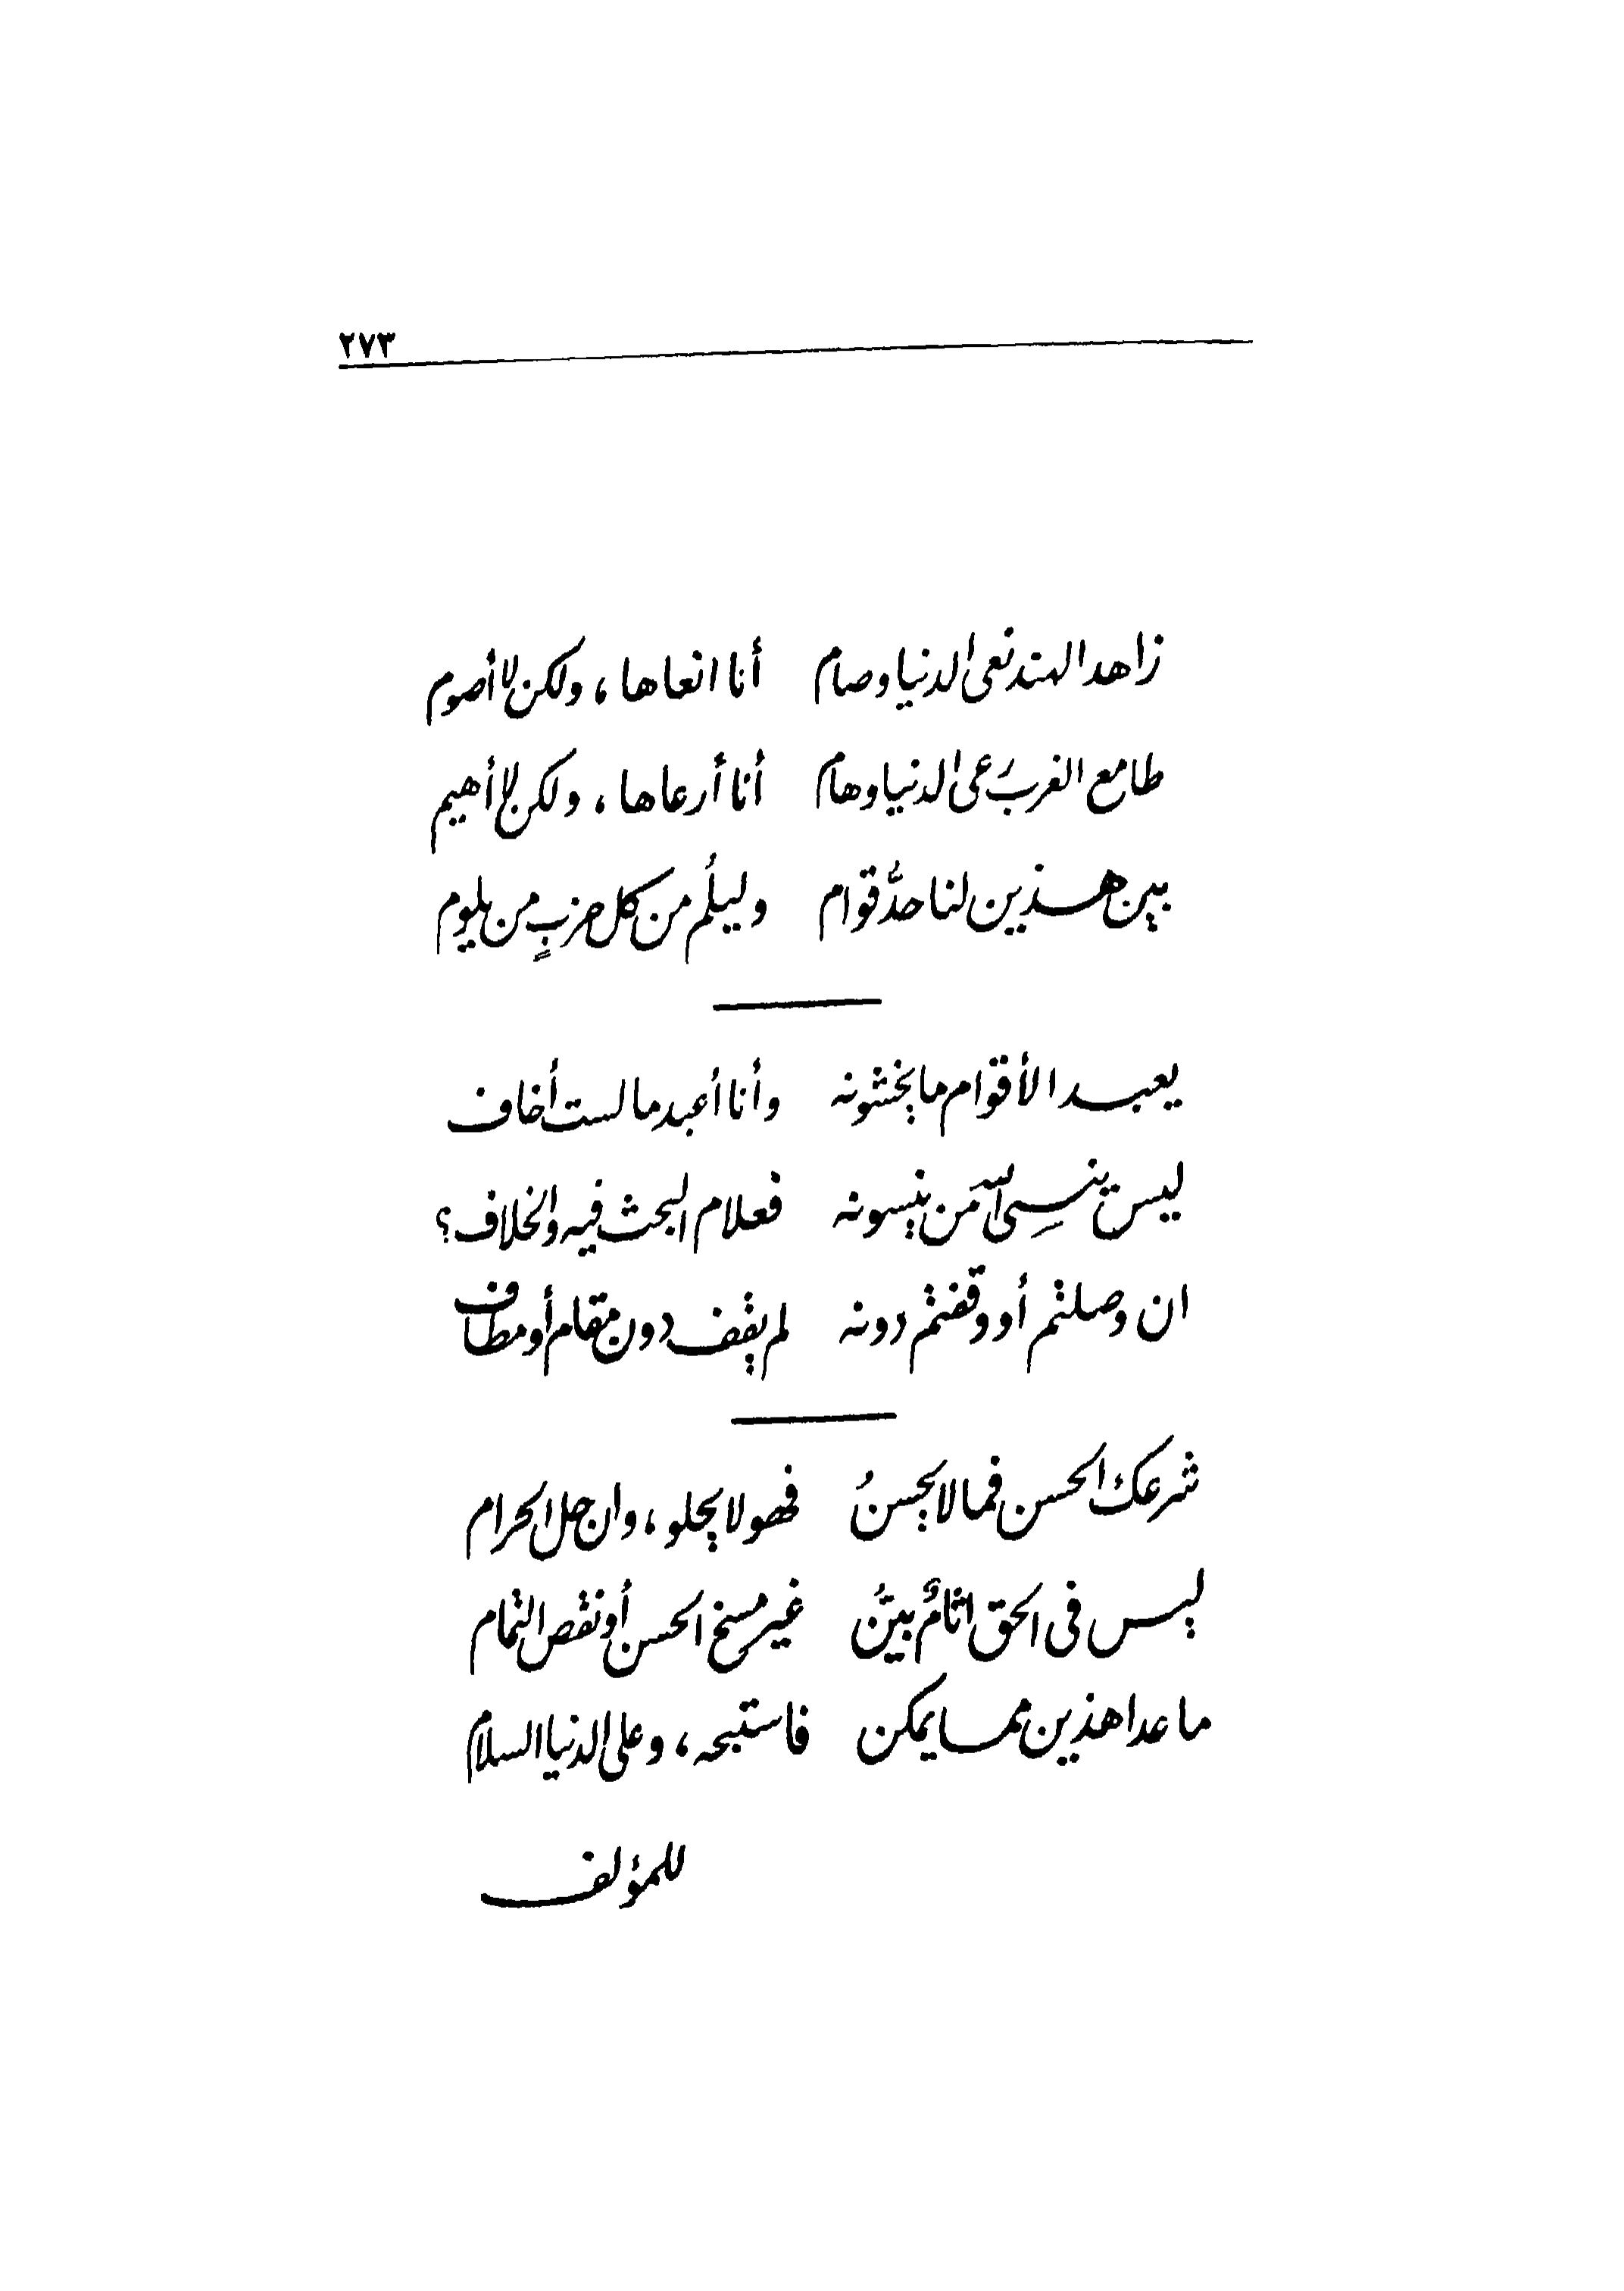 ٢٧٣
زاهد الهند نعى الدنيا وصام أنا انعاها ، ولكن لا أصوم
طامع الغرب رَعى الدنيا وهام أنا أرعاها ، ولكن لا أهيم
بين هذين لنا حدُّ قوام وليلُم من كل حزبٍ من يلوم
يعبد الأقوام ما يخشونه وأنا أعبد ما لست أخاف
ليس ينسِى اللّه مَن ينسونه فعلام البحث فيه والخلاف ؟
ان وصلتم أو وقفتم دونه لم يقف دون مقام أو مطاف
شرعك الحسن فما لا يحسنُ فهو لا يحلو ، وان حل الحرام
ليس فى الحق اثامٌ بيّنُ غير مسخ الحسن أو نقص التمام
ما عدا هذين مما يمكن فاستبحه ، وعلى الدنيا السلام
للمؤلف